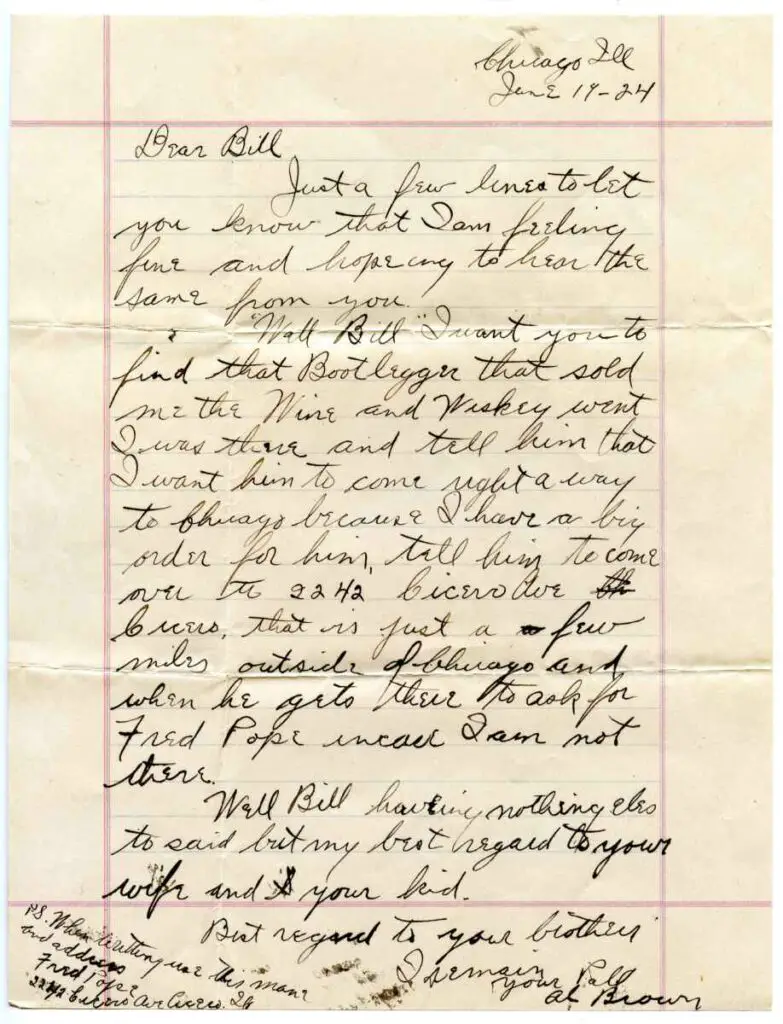 Chicago Ill
June 19-24
Dear Bill
Just a few lines to let
you know that I am feeling
fine and hopeing to hear the
same from you.
"Well Bill" I want you to
find that Bootlegger that sold
me the Wine and Wiskey went
I was there and tell him that
I want him to come right a way
to Chicago because I have a big
order for him, tell him to come
over to 2242 Cicero Ave
Cicero, that is just a few
miles outside of Chicago and
when he gets their to ask for
Fred Pope incase I am not
there.
Well Bill haveing nothing eles
to said but my best regard to your
wife and your kid.
Best regard to your brother
I remain
your Pall
Al Brown
P.S. When Writting use this mane
and address
Fred Pope
2242 Cicero Av Cicero. Ill